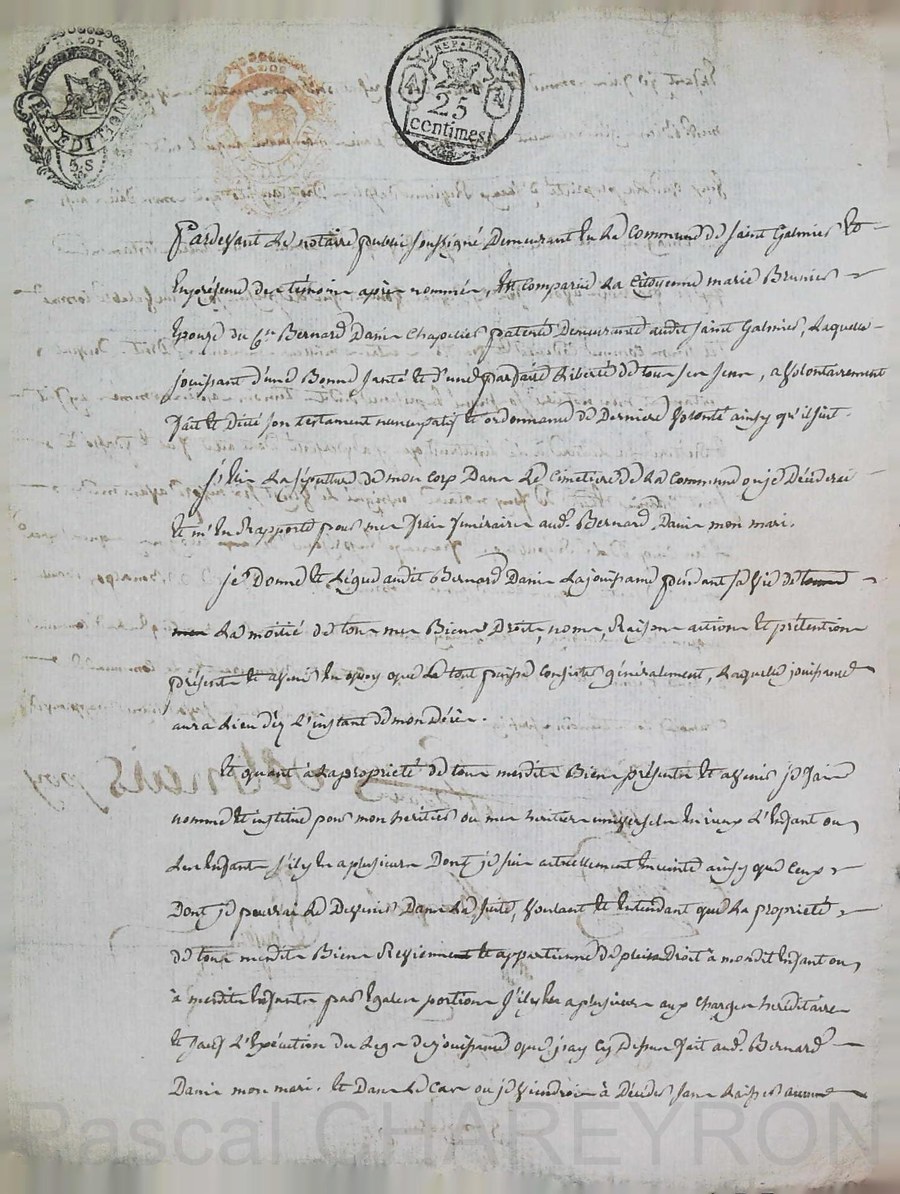 EXPEDITION
5.S
REP. FRA.
25
centimes
Pardevant le notaire public soussigné Demeurant en la Commune de Saint Galmier Et
En présence des témoins après nommés, Est comparue La Citoyenne marie Brunier
Epouze du Cn. Bernard Danis Chapelier patenté Demeurante audit Saint Galmier, Laquelle
jouissant d'une Bonne Santé et d'une parfaite Liberté de tous ses Sens, a Volontairement
fait et Dicté son testament nuncupatif et ordonnance de Derniere Volonté ainsy qu'il suit.
j'Elis La sépulture de mon Corp Dans Le Cimetiere de La Commune ou je Décéderai
Et m'En Rapporte pour mes frais funéraires aud. Bernard Danis mon mari.
je Donne et Légue audit Bernard Danis La jouissance pendant sa vie de
La moitié de tous mes Biens Droits, noms, Raisons actions et prétentions
présents et avenir En quoy que Le tout puisse Consister généralement, Laquelle jouissance
aura Lieu dèz L'instant de mon Décès.
Et quant à La propriété de tous mesdits Biens présents et avenir je fais
nomme et institue pour mon heritier ou mes heritiers universels L'Enfant ou
Les Enfants s'il y En a plusieurs Dont je suis actuellement Enceinte ainsy que Ceux
Dont je pourrai Le Devenir Dans La suite, Voulant et Entendant que La propriété
de tous mesdits Biens Revienne et appartienne de plein Droit à mondit Enfant ou
à mesdits Enfants par Egales portions s'il y En a plusieurs aux Charges héréditaires
Et sauf L'Exécution du Legs de jouissance que j'ay Cy Dessus fait aud. Bernard
Danis mon mari. Et Dans Le Cas ou je Viendrois à Décéder sans Laisser aucuns
Pascal CHAREYRON